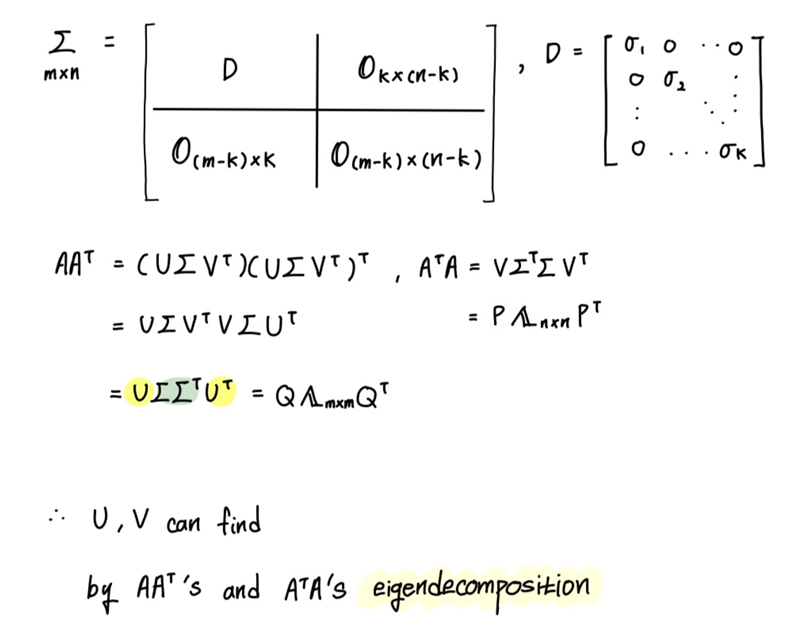 Σ m×n = [ D | O k×(n-k) ; O (m-k)×k | O (m-k)×(n-k) ] , D = [ σ₁ 0 ·· 0 ; 0 σ₂ ⋮ ; ⋮ ⋱ ⋮ ; 0 ... σK ]
AAᵀ = (UΣVᵀ)(UΣVᵀ)ᵀ , AᵀA = VΣᵀΣVᵀ
= UΣVᵀVΣUᵀ = PΛn×nPᵀ
= UΣΣᵀUᵀ = QΛm×mQᵀ
∴ U, V can find
by AAᵀ's and AᵀA's eigendecomposition